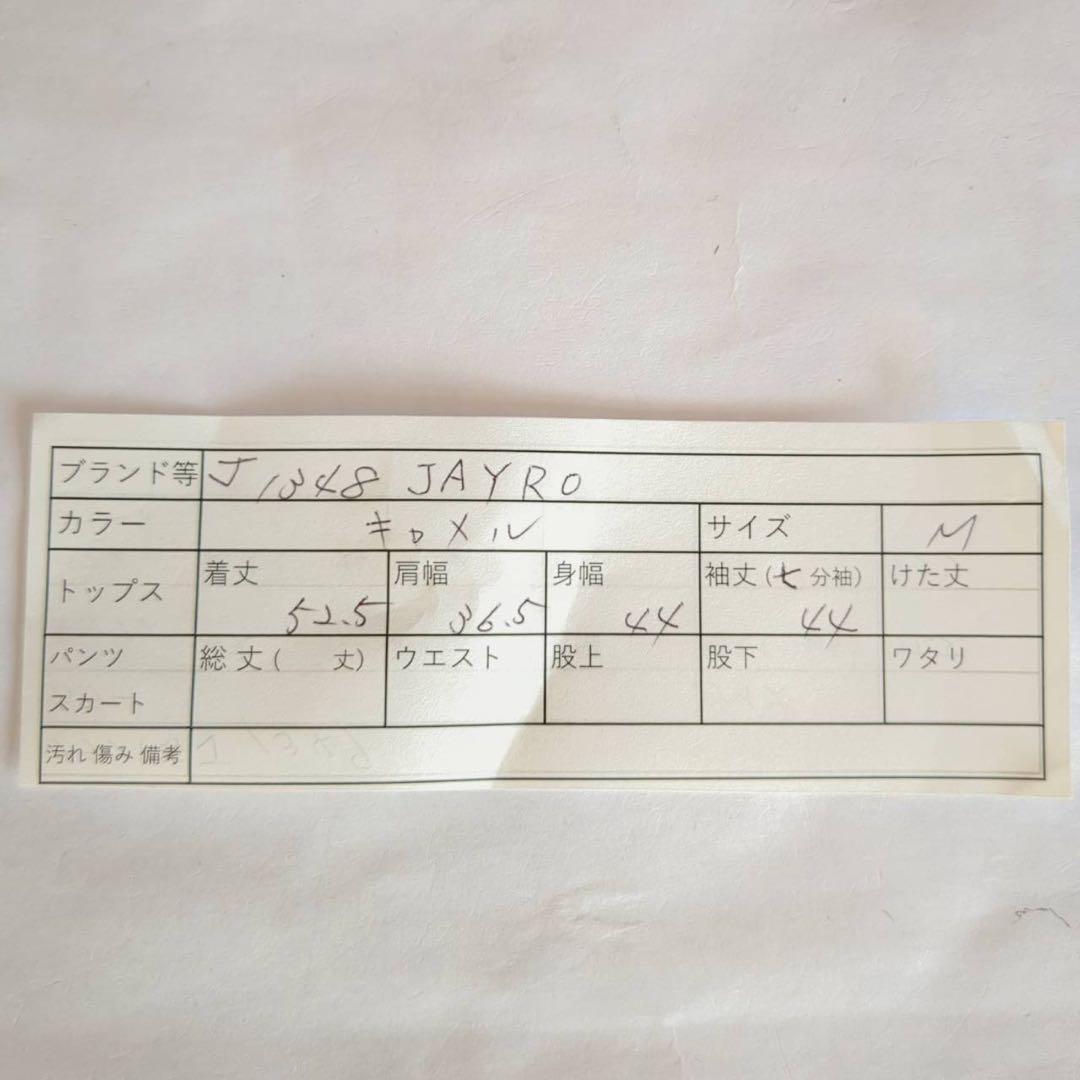 ブランド等 J1348 JAYRO
カラー キャメル サイズ M
トップス 着丈 52.5 肩幅 36.5 身幅 44 袖丈(七分袖) 44 けた丈
パンツ スカート 総丈( 丈) ウエスト 股上 股下 ワタリ
汚れ 傷み 備考